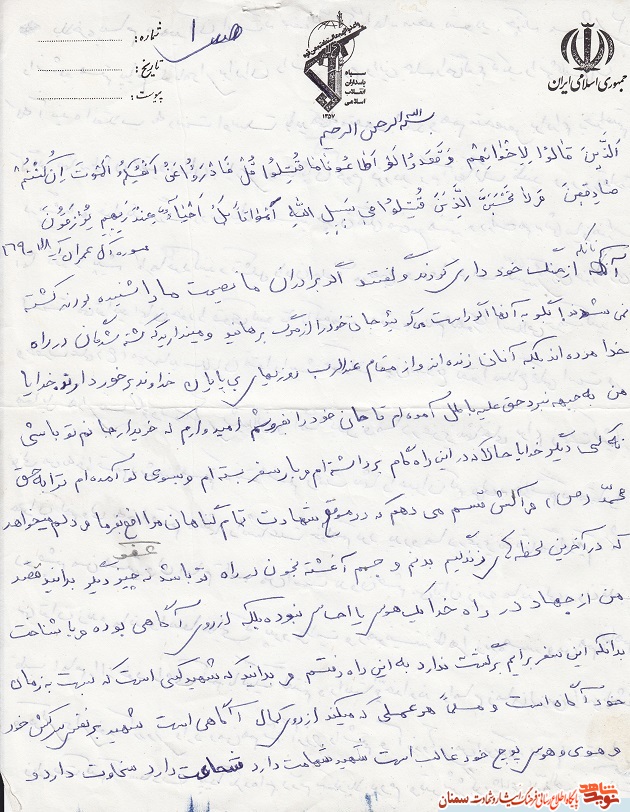 جمهوری اسلامی ایران
سپاه
پاسداران
انقلاب
اسلامی
۱۳۵۷
شماره:
تاریخ:
پیوست:
بسم الله الرحمن الرحیم
اَلَّذینَ قالُوا لِاِخْوانِهِم وَ قَعَدُوا لَوْ اَطاعُونا ما قُتِلُوا قُلْ فَادْرَؤُا عَنْ اَنْفُسِکُمُ الْمَوْتَ اِنْ کُنْتُمْ
صادِقینَ وَ لا تَحْسَبَنَّ الَّذینَ قُتِلُوا فی سَبیلِ اللهِ اَمْواتاً بَلْ اَحْیاءٌ عِنْدَ رَبِّهِم یُرْزَقُونَ
سوره آل عمران آیه ۱۶۹-۱۶۸
از جنگ خود داری کردند و گفتند اگر برادران ما نصیحت ما را شنیده بودند کشته
نمی شدند بگو به آنها اگر راست می گوئید جان خود را از مرگ برهانید و مپندارید که کشته شدگان در راه
خدا مرده اند بلکه آنان زنده اند و از مقام عند الرب روزیهای بی پایان خداوند برخوردارند خدایا
من به جبهه نبرد حق علیه باطل آمده ام تا جان خود را بفروشم امیدوارم که خریدار جانم تو باشی
نه کس دیگر خدایا حالا که در این راه گام برداشته ام و بار سفر بسته ام و بسوی تو آمده ام ترا به حق
محمد (ص) و آلش قسم می دهم که در موقع شهادت تمام گناهان مرا عفو فرما و دلم میخواهد
که در آخرین لحظه های زندگیم بدنم و جسم آغشته بخون در راه تو باشد نه چیز دیگر بدانید قصد
من از جهاد در راه خدا یک هوس یا احساس نبوده بلکه از روی آگاهی بوده و با شناخت
بدانکه این سفر برایم برگشت ندارد به این راه رفتم و بدانید که شهید کسی است که نسبت به زمان
خود آگاه است و مسلماً هر عملی که میکند از روی کمال آگاهی است شهید بر نفس سرکش خود
و هوی و هوس پوچ خود غالب است شهید شهامت دارد شجاعت دارد سخاوت دارد و
نوید شاهد
پایگاه اطلاع رسانی فرهنگ ایثار و شهادت سمنان